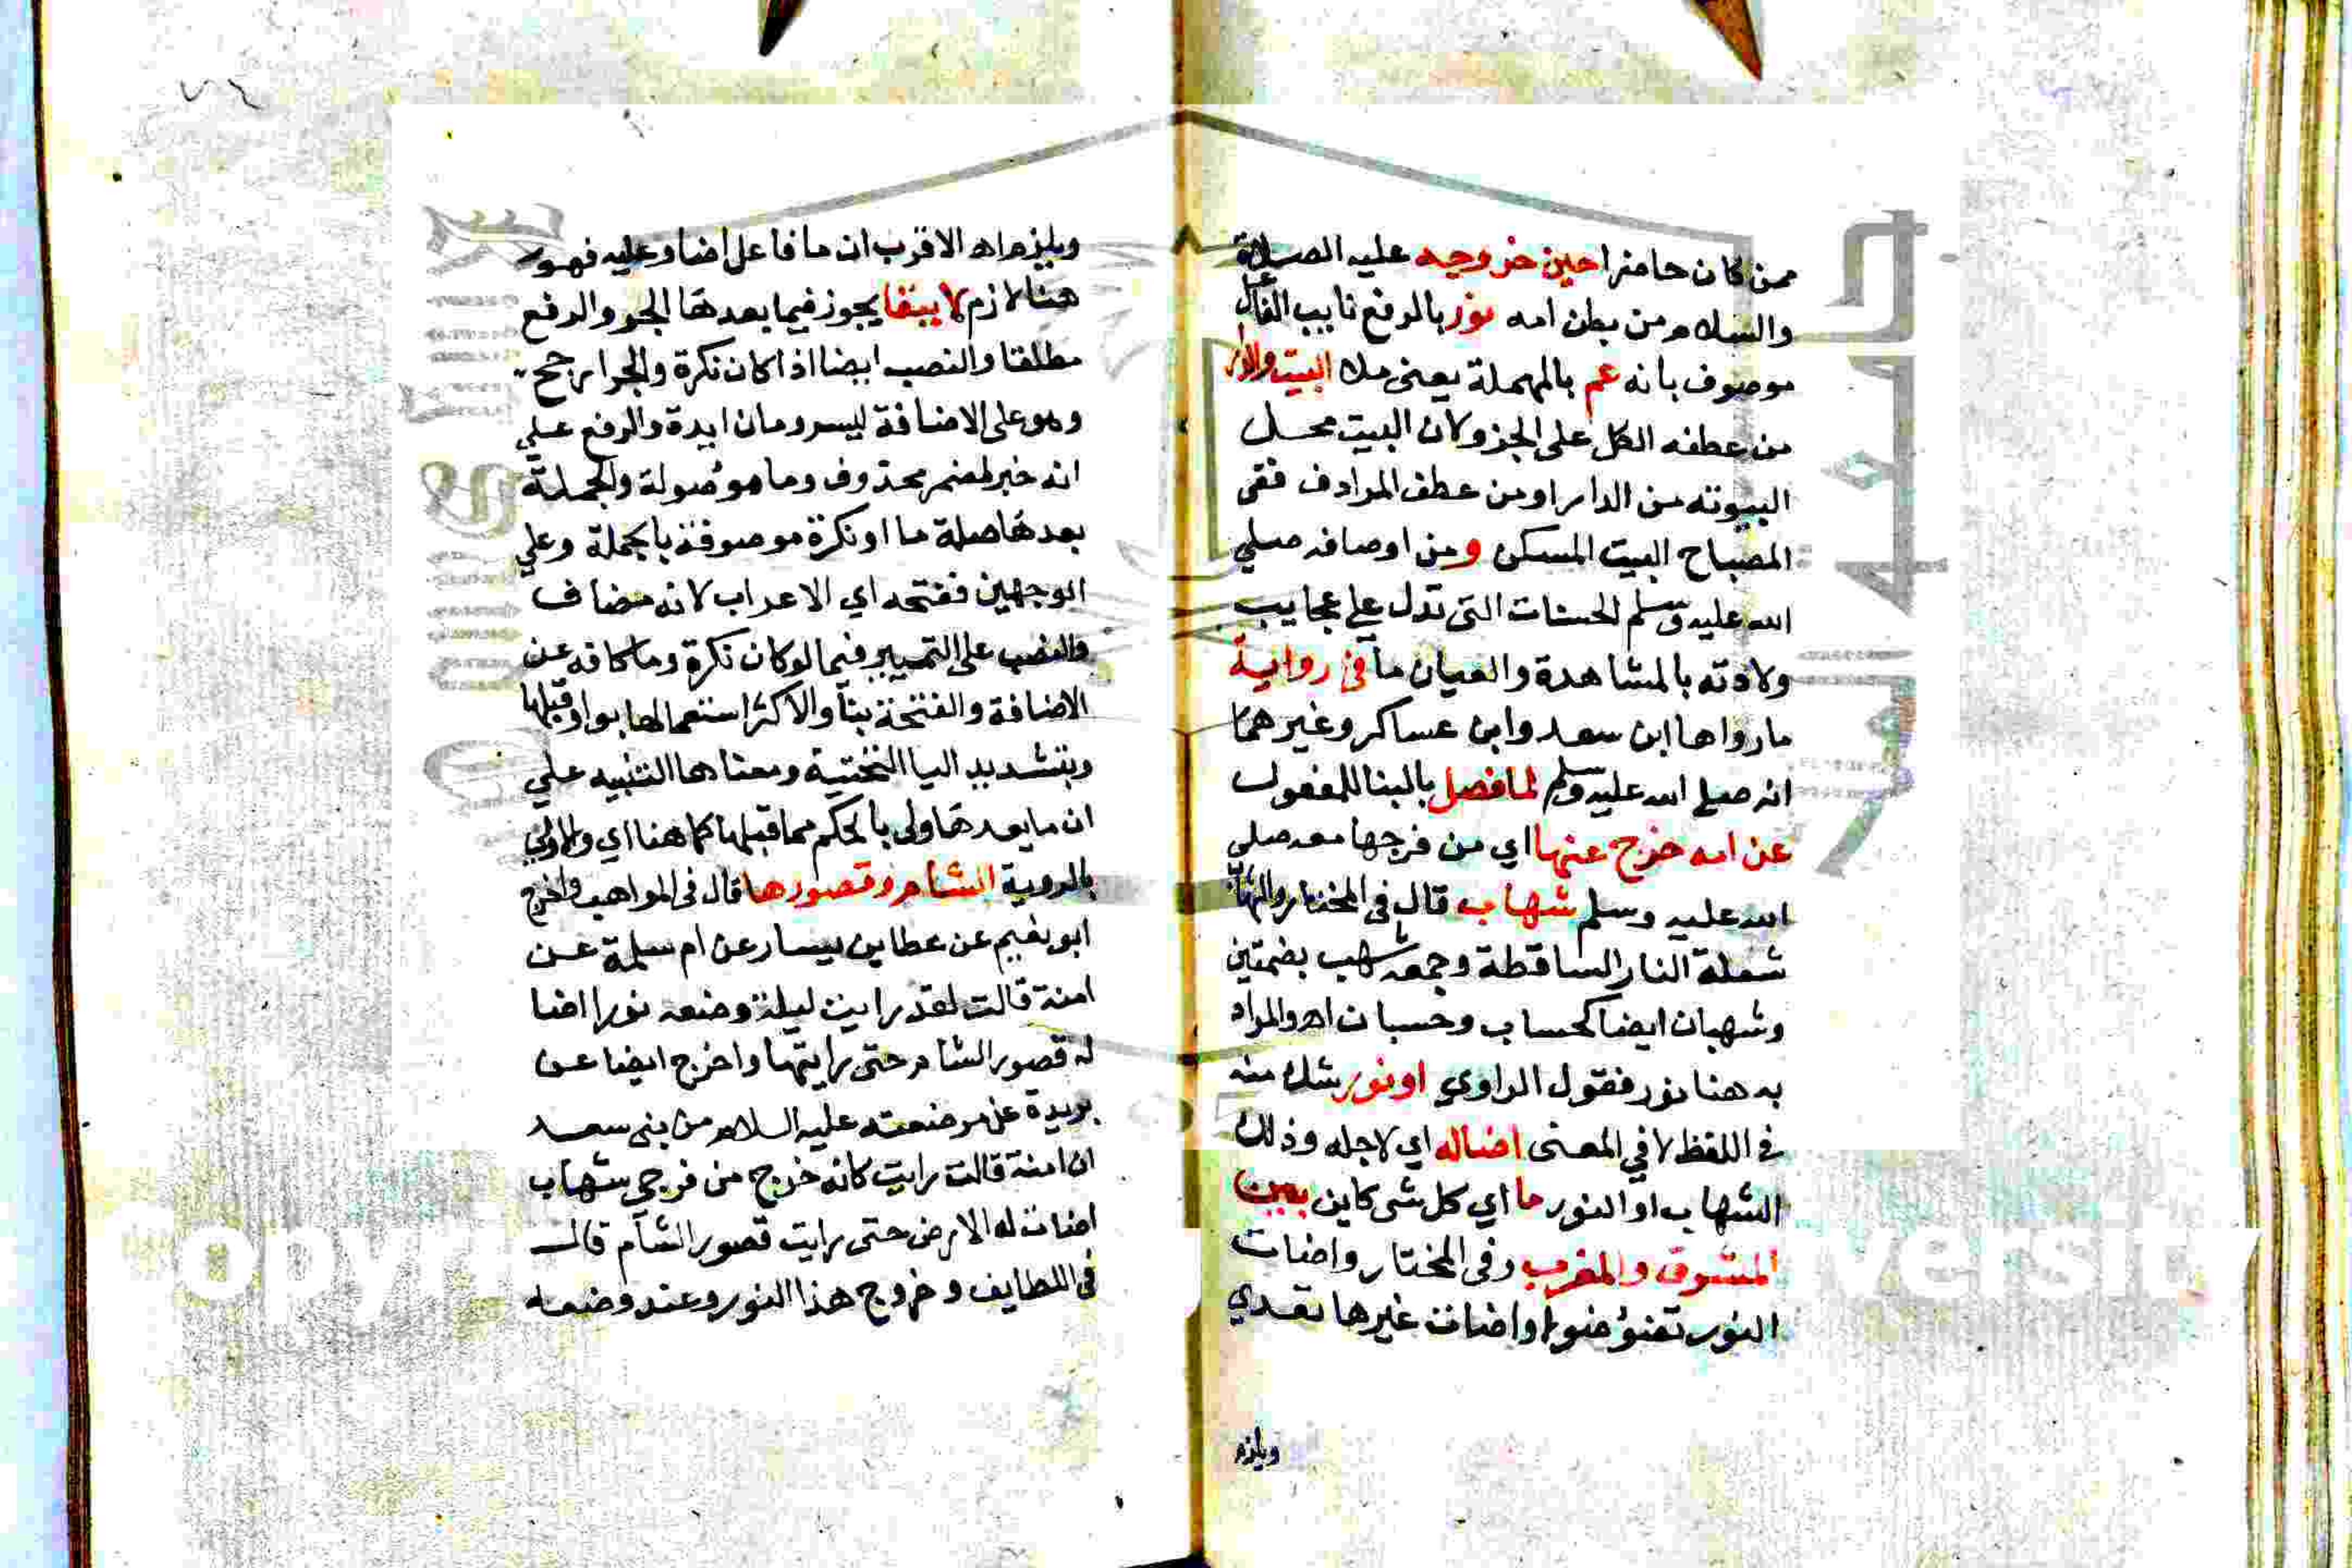 ممن كان حاضرا حين خروجه عليه الصلاة
والسلام من بطن امه نور بالرفع نايب الفاعل
موصوف بانه عم بالمهملة يعني ملا البيت والدار
من عطفه الكل على الجز ولان البيت محل
البيوته من الدار او من عطف المرادف ففي
المصباح البيت المسكن ومن اوصافه صلي
الله عليه وسلم الحسنات التي تدل علي عجايب
ولادته بالمشاهدة والعيان ما في رواية
مارواها ابن سعد وابن عساكر وغيرهما
انه صلي الله عليه وسلم لما فصل بالبنا للمفعول
عن امه خرج عنها اي من فرجها معه صلي
الله عليه وسلم شهاب قال في المختار والشهاب
شعلة النار الساقطة وجمعه شهب بضمتين
وشهبان ايضا كحساب وحسبان اهـ والمراد
به هنا نور فقول الراوي او نور شك منه
في اللفظ لا في المعنى اضاله اي لاجله وذلك
الشهاب او النور ما اي كل شي كاين بين
المشرق والمغرب وفي المختار واضات
النور تضؤ ضوا واضات غيرها تعدي
ويلزم
ويلزم اهـ الاقرب ان ما فاعل اضا وعليه فهو
هنا لازم لا سيما يجوز فيما بعدها الجر والرفع
مطلقا والنصب ايضا اذا كان نكرة والجر ارجح
وهو على الاضافة ليس ومان ايدة والرفع علي
انه خبر لمضمر محذوف وما موصولة والجملة
بعدها صلة ما او نكرة موصوفة بالجملة وعلي
الوجهين ففتحه اي الاعراب لانه مضاف
والنصب على التمييز فيما لو كان نكرة وما كافه عن
الاضافة والفتحة بنا والاكثر استعمالها بواو قبلها
وبتشديد اليا التحتية ومعناها التنبيه علي
ان ما بعدها اولى بالحكم مما قبلها كما هنا اي والاولي
بالروية الشام وقصورها قال في المواهب واخرج
ابو نعيم عن عطا بن يسار عن ام سلمة عن
امنة قالت لقد رايت ليلة وضعه نورا اضا
له قصور الشام حتى رايتها واخرج ايضا عن
بريدة عن مرضعته عليه السلام من بني سعد
ان امنة قالت رايت كانه خرج من فرجي شهاب
اضات له الارض حتى رايت قصور الشام قال
في اللطايف وخروج هذا النور وعند وضعه